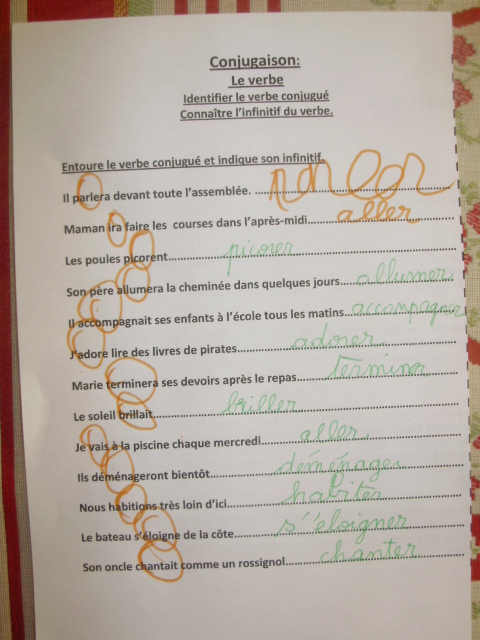 Conjugaison:
Le verbe
Identifier le verbe conjugué
Connaître l'infinitif du verbe.
Entoure le verbe conjugué et indique son infinitif.
Il parlera devant toute l'assemblée. ........ parler
Maman ira faire les courses dans l'après-midi........ aller
Les poules picorent........ picorer
Son père allumera la cheminée dans quelques jours........ allumer
Il accompagnait ses enfants à l'école tous les matins........ accompagner
J'adore lire des livres de pirates........ adorer
Marie terminera ses devoirs après le repas........ terminer
Le soleil brillait........ briller
Je vais à la piscine chaque mercredi........ aller
Ils déménageront bientôt........ déménager
Nous habitions très loin d'ici........ habiter
Le bateau s'éloigne de la côte........ s'éloigner
Son oncle chantait comme un rossignol........ chanter